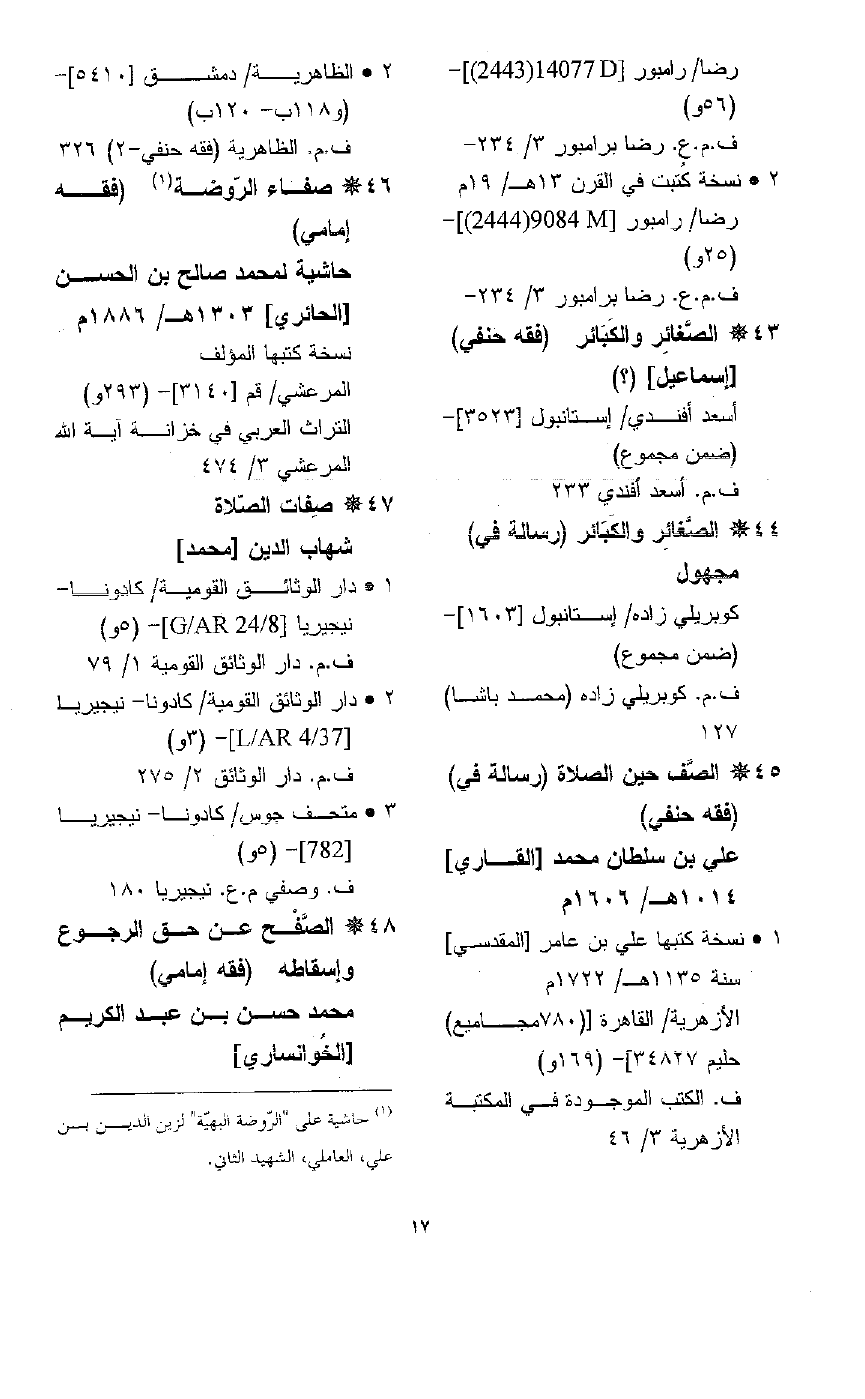 رضا/ رامبور [2443)14077 D)]–
(٥٦و)
ف.م.ع. رضا برامبور ٣/ ٢٣٤–
٢ • نسخة كُتبت في القرن ١٣هـ/ ١٩م
رضا/ رامبور [2444)9084 M)]–
(٢٥و)
ف.م.ع. رضا برامبور ٣/ ٢٣٤–
٤٣❋ الصَّغائِر والكَبَائر (فقه حنفي)
[إسماعيل] (؟)
أسعد أفندي/ إستانبول [٣٥٢٣]–
(ضمن مجموع)
ف.م. أسعد أفندي ٢٣٣
٤٤❋ الصَّغائر والكَبَائر (رسالة في)
مجهول
كوبريلي زاده/ إستانبول [١٦٠٣]–
(ضمن مجموع)
ف.م. كوبريلي زاده (محمد باشا)
١٢٧
٤٥❋ الصَّف حين الصلاة (رسالة في)
(فقه حنفي)
علي بن سلطان محمد [القاري]
١٠١٤هـ/ ١٦٠٦م
١ • نسخة كتبها علي بن عامر [المقدسي]
سنة ١١٣٥هـ/ ١٧٢٢م
الأزهرية/ القاهرة [(٧٨٠مجاميع)
حليم ٣٤٨٢٧]– (١٦٩و)
ف. الكتب الموجودة في المكتبة
الأزهرية ٣/ ٤٦
٢ • الظاهرية/ دمشق [٥٤١٠]–
(و١١٨ب– ١٢٠ب)
ف.م. الظاهرية (فقه حنفي–٢) ٣٢٦
٤٦❋ صفاء الرّوضة(١) (فقه
إمامي)
حاشية لمحمد صالح بن الحسن
[الحائري] ١٣٠٣هـ/ ١٨٨٦م
نسخة كتبها المؤلف
المرعشي/ قم [٣١٤٠]– (٢٩٣و)
التراث العربي في خزانة آية الله
المرعشي ٣/ ٤٧٤
٤٧❋ صِفات الصّلاة
شهاب الدين [محمد]
١ • دار الوثائق القومية/ كادونا–
نيجيريا [G/AR 24/8]– (٥و)
ف.م. دار الوثائق القومية ١/ ٧٩
٢ • دار الوثائق القومية/ كادونا– نيجيريا
[L/AR 4/37]– (٣و)
ف.م. دار الوثائق ٢/ ٢٧٥
٣ • متحف جوس/ كادونا– نيجيريا
[782]– (٥و)
ف. وصفي م.ع. نيجيريا ١٨٠
٤٨❋ الصَّفْح عن حق الرجوع
وإسقاطه (فقه إمامي)
محمد حسن بن عبد الكريم
[الخُوانساري]
(١) حاشية على "الرّوضة البهيّة" لزين الدين بن
علي، العاملي، الشهيد الثاني.
١٧